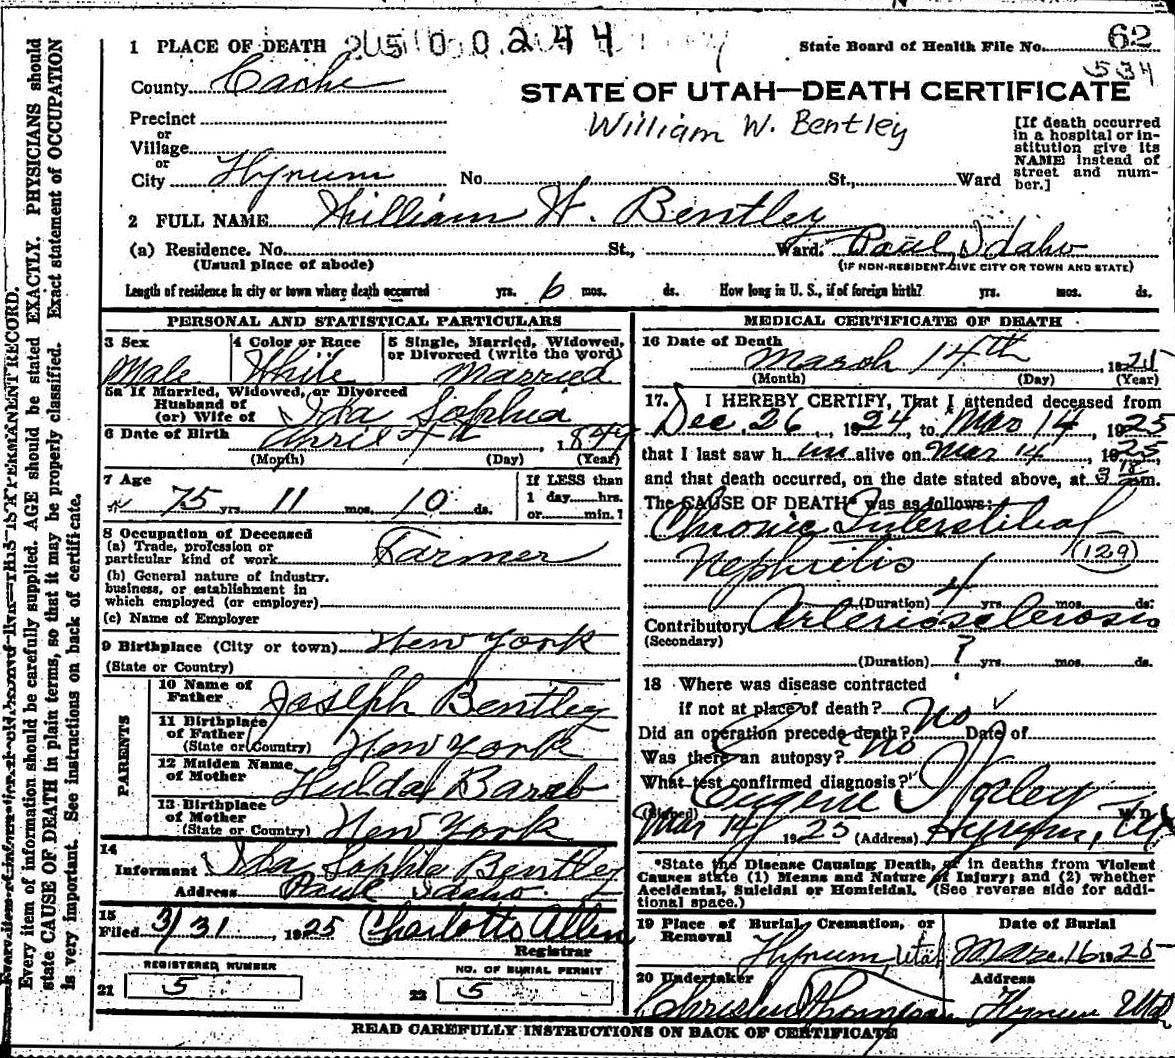 1 PLACE OF DEATH 2450 0 2 4 4
State Board of Health File No. 62
534
County Cache
STATE OF UTAH—DEATH CERTIFICATE
William W. Bentley
Precinct
or
Village
or
City Hyrum No. St., Ward
[If death occurred
in a hospital or in-
stitution give its
NAME instead of
street and num-
ber.]
2 FULL NAME William W. Bentley
(a) Residence. No. St., Ward. Paul, Idaho
(Usual place of abode) (IF NON-RESIDENT GIVE CITY OR TOWN AND STATE)
Length of residence in city or town where death occurred yrs. 6 mos. ds. How long in U. S., if of foreign birth? yrs. mos. ds.
PERSONAL AND STATISTICAL PARTICULARS
3 Sex 4 Color or Race 5 Single, Married, Widowed,
or Divorced (write the word)
Male White Married
5a If Married, Widowed, or Divorced
Husband of
(or) Wife of Ida Sophia
6 Date of Birth April 4th, 1849
(Month) (Day) (Year)
7 Age If LESS than
75 yrs. 11 mos. 10 ds. 1 day hrs.
or min.?
8 Occupation of Deceased
(a) Trade, profession or
particular kind of work Farmer
(b) General nature of industry,
business, or establishment in
which employed (or employer)
(c) Name of Employer
9 Birthplace (City or town) New York
(State or Country)
PARENTS
10 Name of
Father Joseph Bentley
11 Birthplace
of Father
(State or Country) New York
12 Maiden Name
of Mother Huldah
13 Birthplace
of Mother
(State or Country) New York
14
Informant Ida Sophia Bentley
Address Paul Idaho.
15
Filed 3/31, 1925 Charlotte Allen
Registrar
REGISTERED NUMBER NO. OF BURIAL PERMIT
21 5 22 5
MEDICAL CERTIFICATE OF DEATH
16 Date of Death
March 14th, 1925
(Month) (Day) (Year)
17. I HEREBY CERTIFY, That I attended deceased from
Dec. 26, 1924, to Mar 14, 1925
that I last saw h im alive on Mar 14, 1925
and that death occurred, on the date stated above, at 3 m.
The CAUSE OF DEATH* was as follows:
Chronic Interstitial
Nephritis (129)
(Duration) 4 yrs. mos. ds.
Contributory Arteriosclerosis
(Secondary)
(Duration) ? yrs. mos. ds.
18 Where was disease contracted
if not at place of death?
Did an operation precede death? No Date of
Was there an autopsy? No
What test confirmed diagnosis?
(Signed) Eugene Worley M. D.
Mar 14 1925 (Address) Hyrum, Ut
*State the Disease Causing Death, or in deaths from Violent
Causes state (1) Means and Nature of Injury; and (2) whether
Accidental, Suicidal or Homicidal. (See reverse side for addi-
tional space.)
19 Place of Burial, Cremation, or
Removal Date of Burial
Hyrum, Utah Mar. 16 1925
20 Undertaker Address
Thomson Hyrum Utah
READ CAREFULLY INSTRUCTIONS ON BACK OF CERTIFICATE
Every item of information should be carefully supplied. AGE should be stated EXACTLY. PHYSICIANS should
state CAUSE OF DEATH in plain terms, so that it may be properly classified. Exact statement of OCCUPATION
is very important. See instructions on back of certificate.